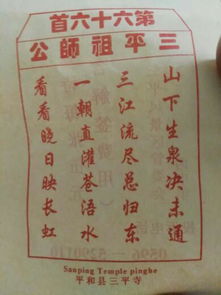 第六十六首
三平祖師公
山下生泉决未通
三江流尽总归东
一朝直灌苍浯水
看看晚日映长虹
Sanping Temple pinghe
平和县三平寺